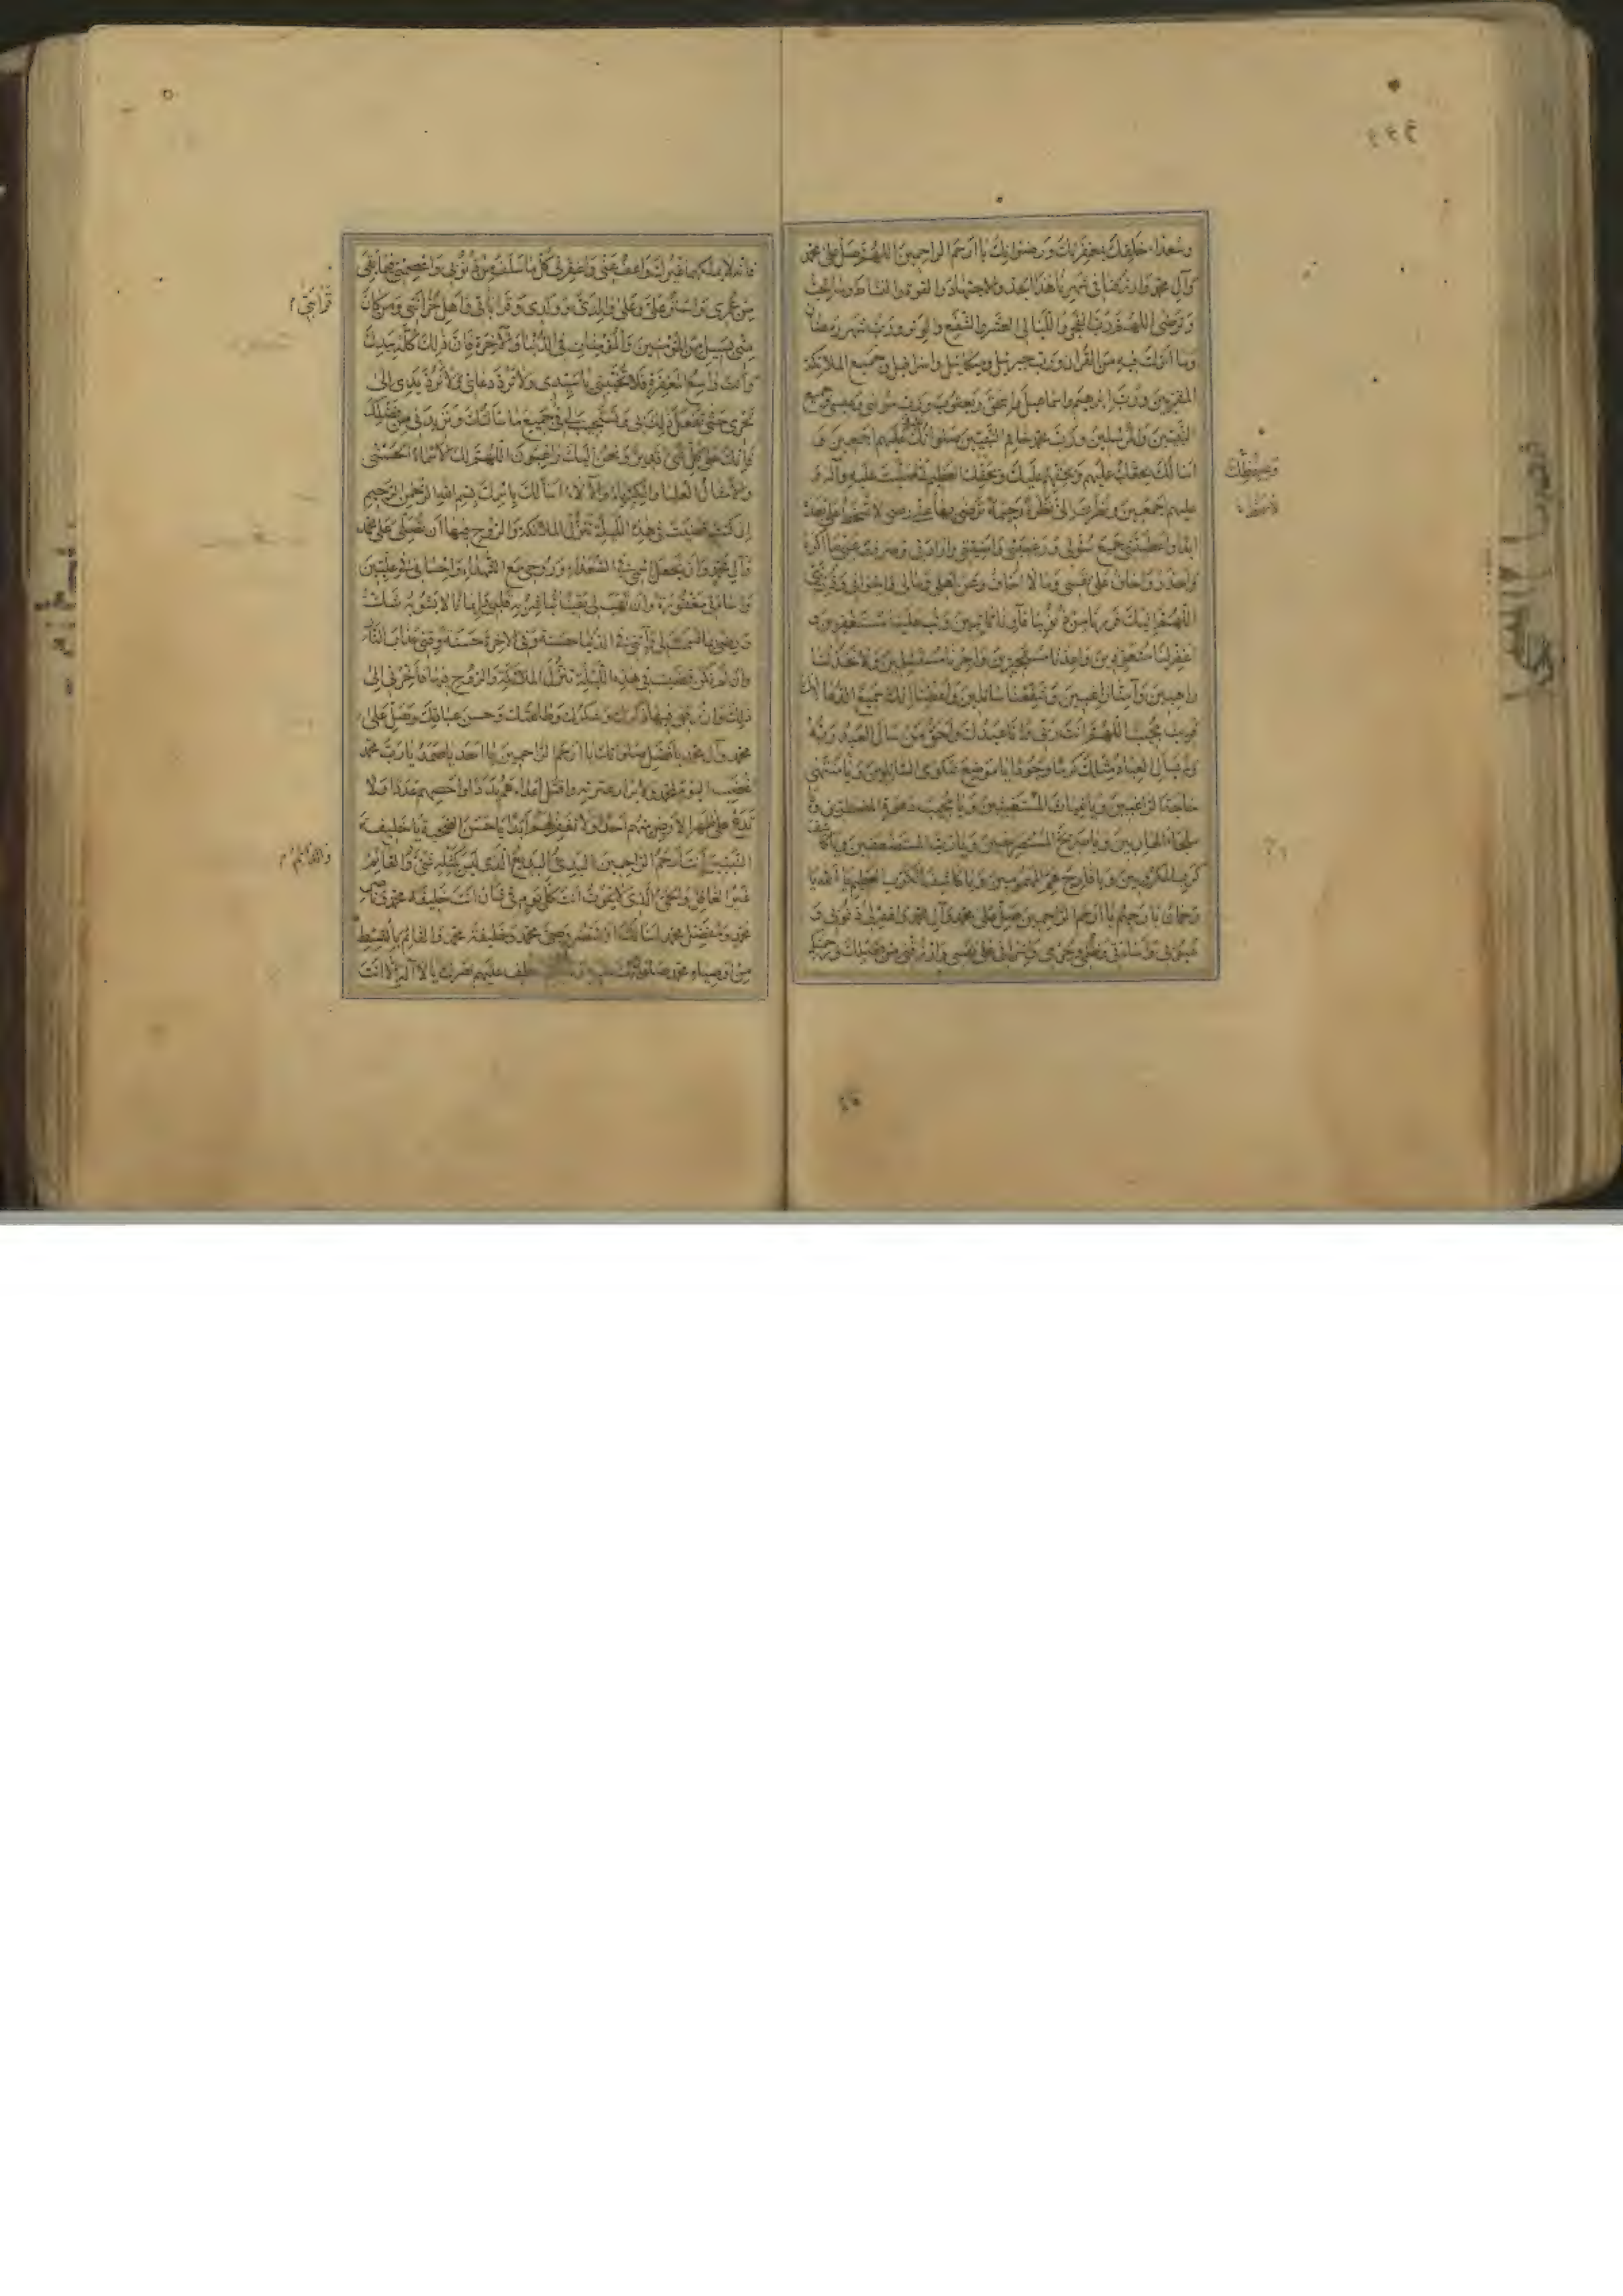 وسعداء خلقك بمغفرتك ورضوانك يا ارحم الراحمين اللهم صل على محمد
وآل محمد وارزقنا في شهرنا هذا الجد والاجتهاد والقوة والنشاط وما تحب
وترضى اللهم رب الفجر والليالي العشر والشفع والوتر ورب شهر رمضان
وما انزلت فيه من القرآن ورب جبرئيل وميكائيل واسرافيل وجميع الملائكة
المقربين ورب ابرهيم واسماعيل واسحق ويعقوب ورب موسى وعيسى وجميع
النبيين والمرسلين ورب محمد خاتم النبيين صلواتك عليهم اجمعين و
اسألك بحقك عليهم وبحقهم عليك وبحقك العظيم لما صليت عليه وآله و
عليهم اجمعين ونظرت الي نظرة رحيمة ترضى بها عني رضى لا تسخط علي بعده
ابدا واعطيتني جميع سؤلي ورغبتي وامنيتي وارادتي وصرفت عني ما اكره
واحذر واخاف على نفسي وما لا اخاف وعن اهلي ومالي واخواني وذريتي
اللهم اليك فررنا من ذنوبنا فآونا تائبين وتب علينا مستغفرين و
اغفر لنا متعوذين واعذنا مستجيرين واجرنا مستسلمين ولا تخذلنا
راهبين وآمنا راغبين وشفعنا سائلين واعطنا انك سميع الدعاء
قريب مجيب اللهم انت ربي وانا عبدك واحق من سأل العبد ربه
ولم يسأل العباد مثلك كرما وجودا يا موضع شكوى السائلين ويا منتهى
حاجة الراغبين ويا غياث المستغيثين ويا مجيب دعوة المضطرين ويا
ملجأ الهاربين ويا صريخ المستصرخين ويا رب المستضعفين ويا كاشف
كرب المكروبين ويا فارج هم المهمومين ويا كاشف الكرب العظيم يا الله يا
رحمان يا رحيم يا ارحم الراحمين صل على محمد وآل محمد واغفر لي ذنوبي و
عيوبي واساءتي وظلمي وجرمي واسرافي على نفسي وارزقني من فضلك ورحمتك
وبحقك
فانه لا يملكها غيرك واعف عني واغفر لي كل ما سلف من ذنوبي واعصمني فيما بقي
من عمري واستر علي وعلى والدي وولدي وقرابتي واهل حزانتي ومن كان
قرابتي
مني بسبيل من المؤمنين والمؤمنات في الدنيا والآخرة فان ذلك كله بيدك
وانت واسع المغفرة فلا تخيبني يا سيدي ولا ترد دعائي ولا ترد يدي الى
نحري حتى تفعل ذلك بي وتستجيب لي جميع ما سألتك وتزيدني من فضلك
فانك على كل شيء قدير ونحن اليك راغبون اللهم لك الاسماء الحسنى
والامثال العليا والكبرياء والآلاء اسألك باسمك بسم الله الرحمن الرحيم
ان كنت قضيت في هذه الليلة تنزل الملائكة والروح فيها ان تصلي على محمد
وآل محمد وان تجعل اسمي في السعداء وروحي مع الشهداء واحساني في عليين
واساءتي مغفورة وان تهب لي يقينا تباشر به قلبي وايمانا لا يشوبه شك
ورضى بما قسمت لي وآتني في الدنيا حسنة وفي الآخرة حسنة وقني عذاب النار
وان لم تكن قضيت في هذه الليلة تنزل الملائكة والروح فيها فاخرني الى
ذلك وارزقني فيها ذكرك وشكرك وطاعتك وحسن عبادتك وصل على
محمد وآل محمد بافضل صلواتك يا ارحم الراحمين يا احد يا صمد يا رب محمد
اغضب اليوم لمحمد ولابرار عترته واقتل اعداءهم بددا واحصهم عددا ولا
تدع على ظهر الارض منهم احدا ولا تغفر لهم ابدا يا حسن الصحبة يا خليفة
النبيين انت ارحم الراحمين البديء البديع الذي ليس كمثله شيء والقائم
والدائم
غير الغافل والحي الذي لا يموت انت كل يوم في شان انت خليفة محمد وناصر
محمد ومفضل محمد اسألك ان تنصر وصي محمد وخليفة محمد والقائم بالقسط
من اوصياء محمد صلواتك عليه وعليهم اعطف عليهم نصرك يا لا اله الا انت